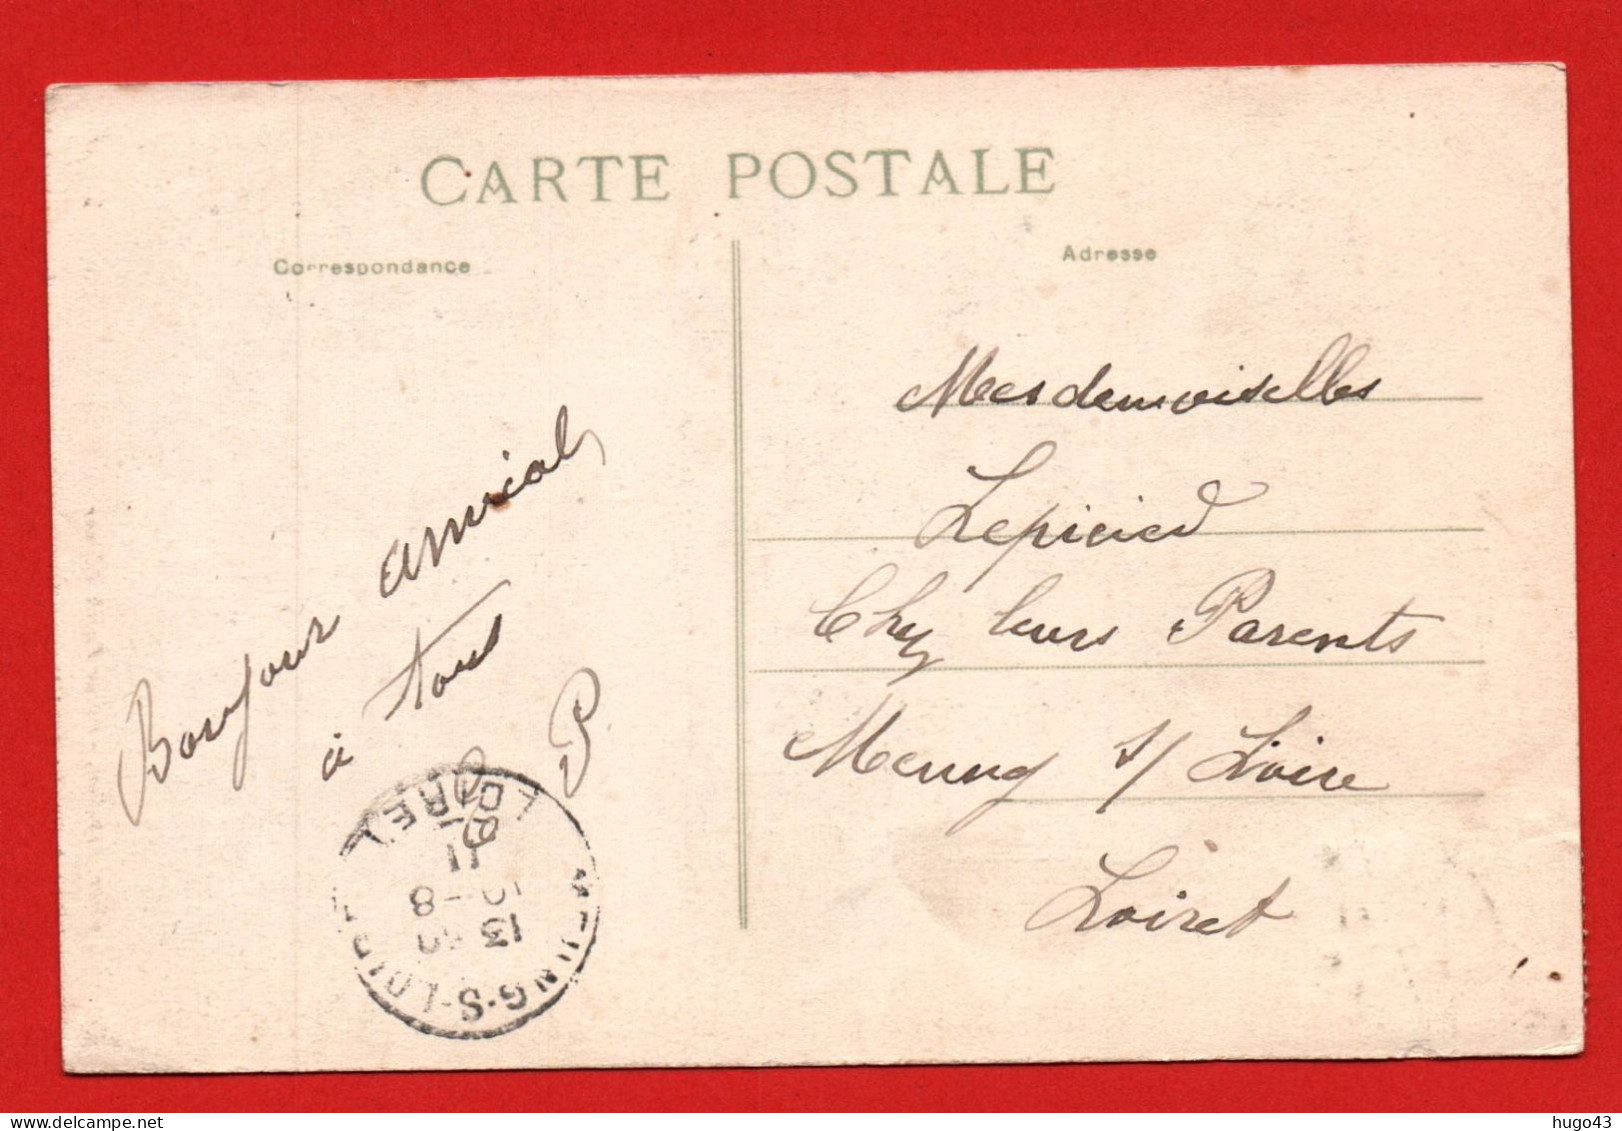 CARTE POSTALE
Correspondance
Adresse
Bonjour amical
à tous
P
Mesdemoiselles
Lepicied
Chez leurs Parents
Meung s/ Loire
Loiret
MEUNG-S-LOIRE
13
8
11
LOIRET
hugo43